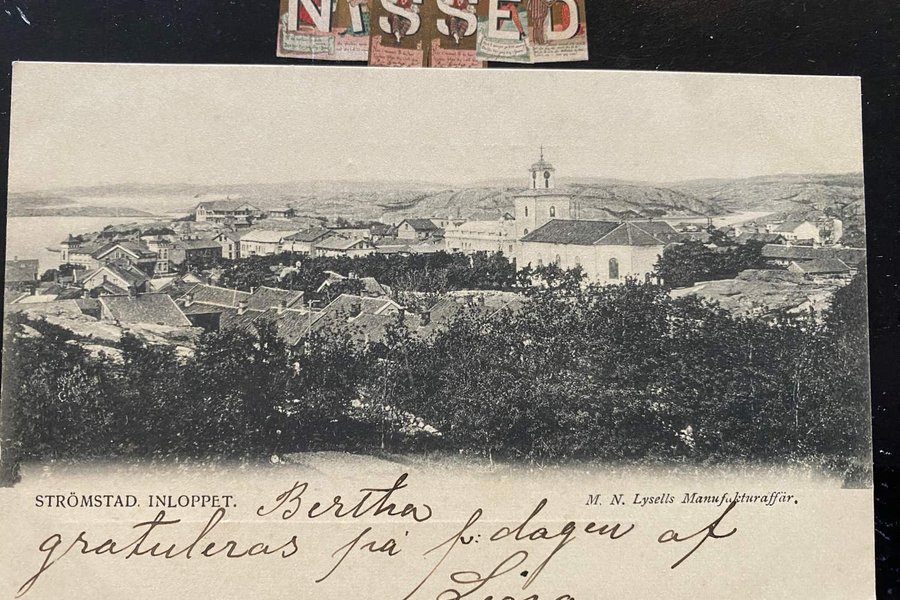 NISSED
STRÖMSTAD. INLOPPET.
M. N. Lysells Manufakturaffär.
Bertha
gratuleras på f: dagen af